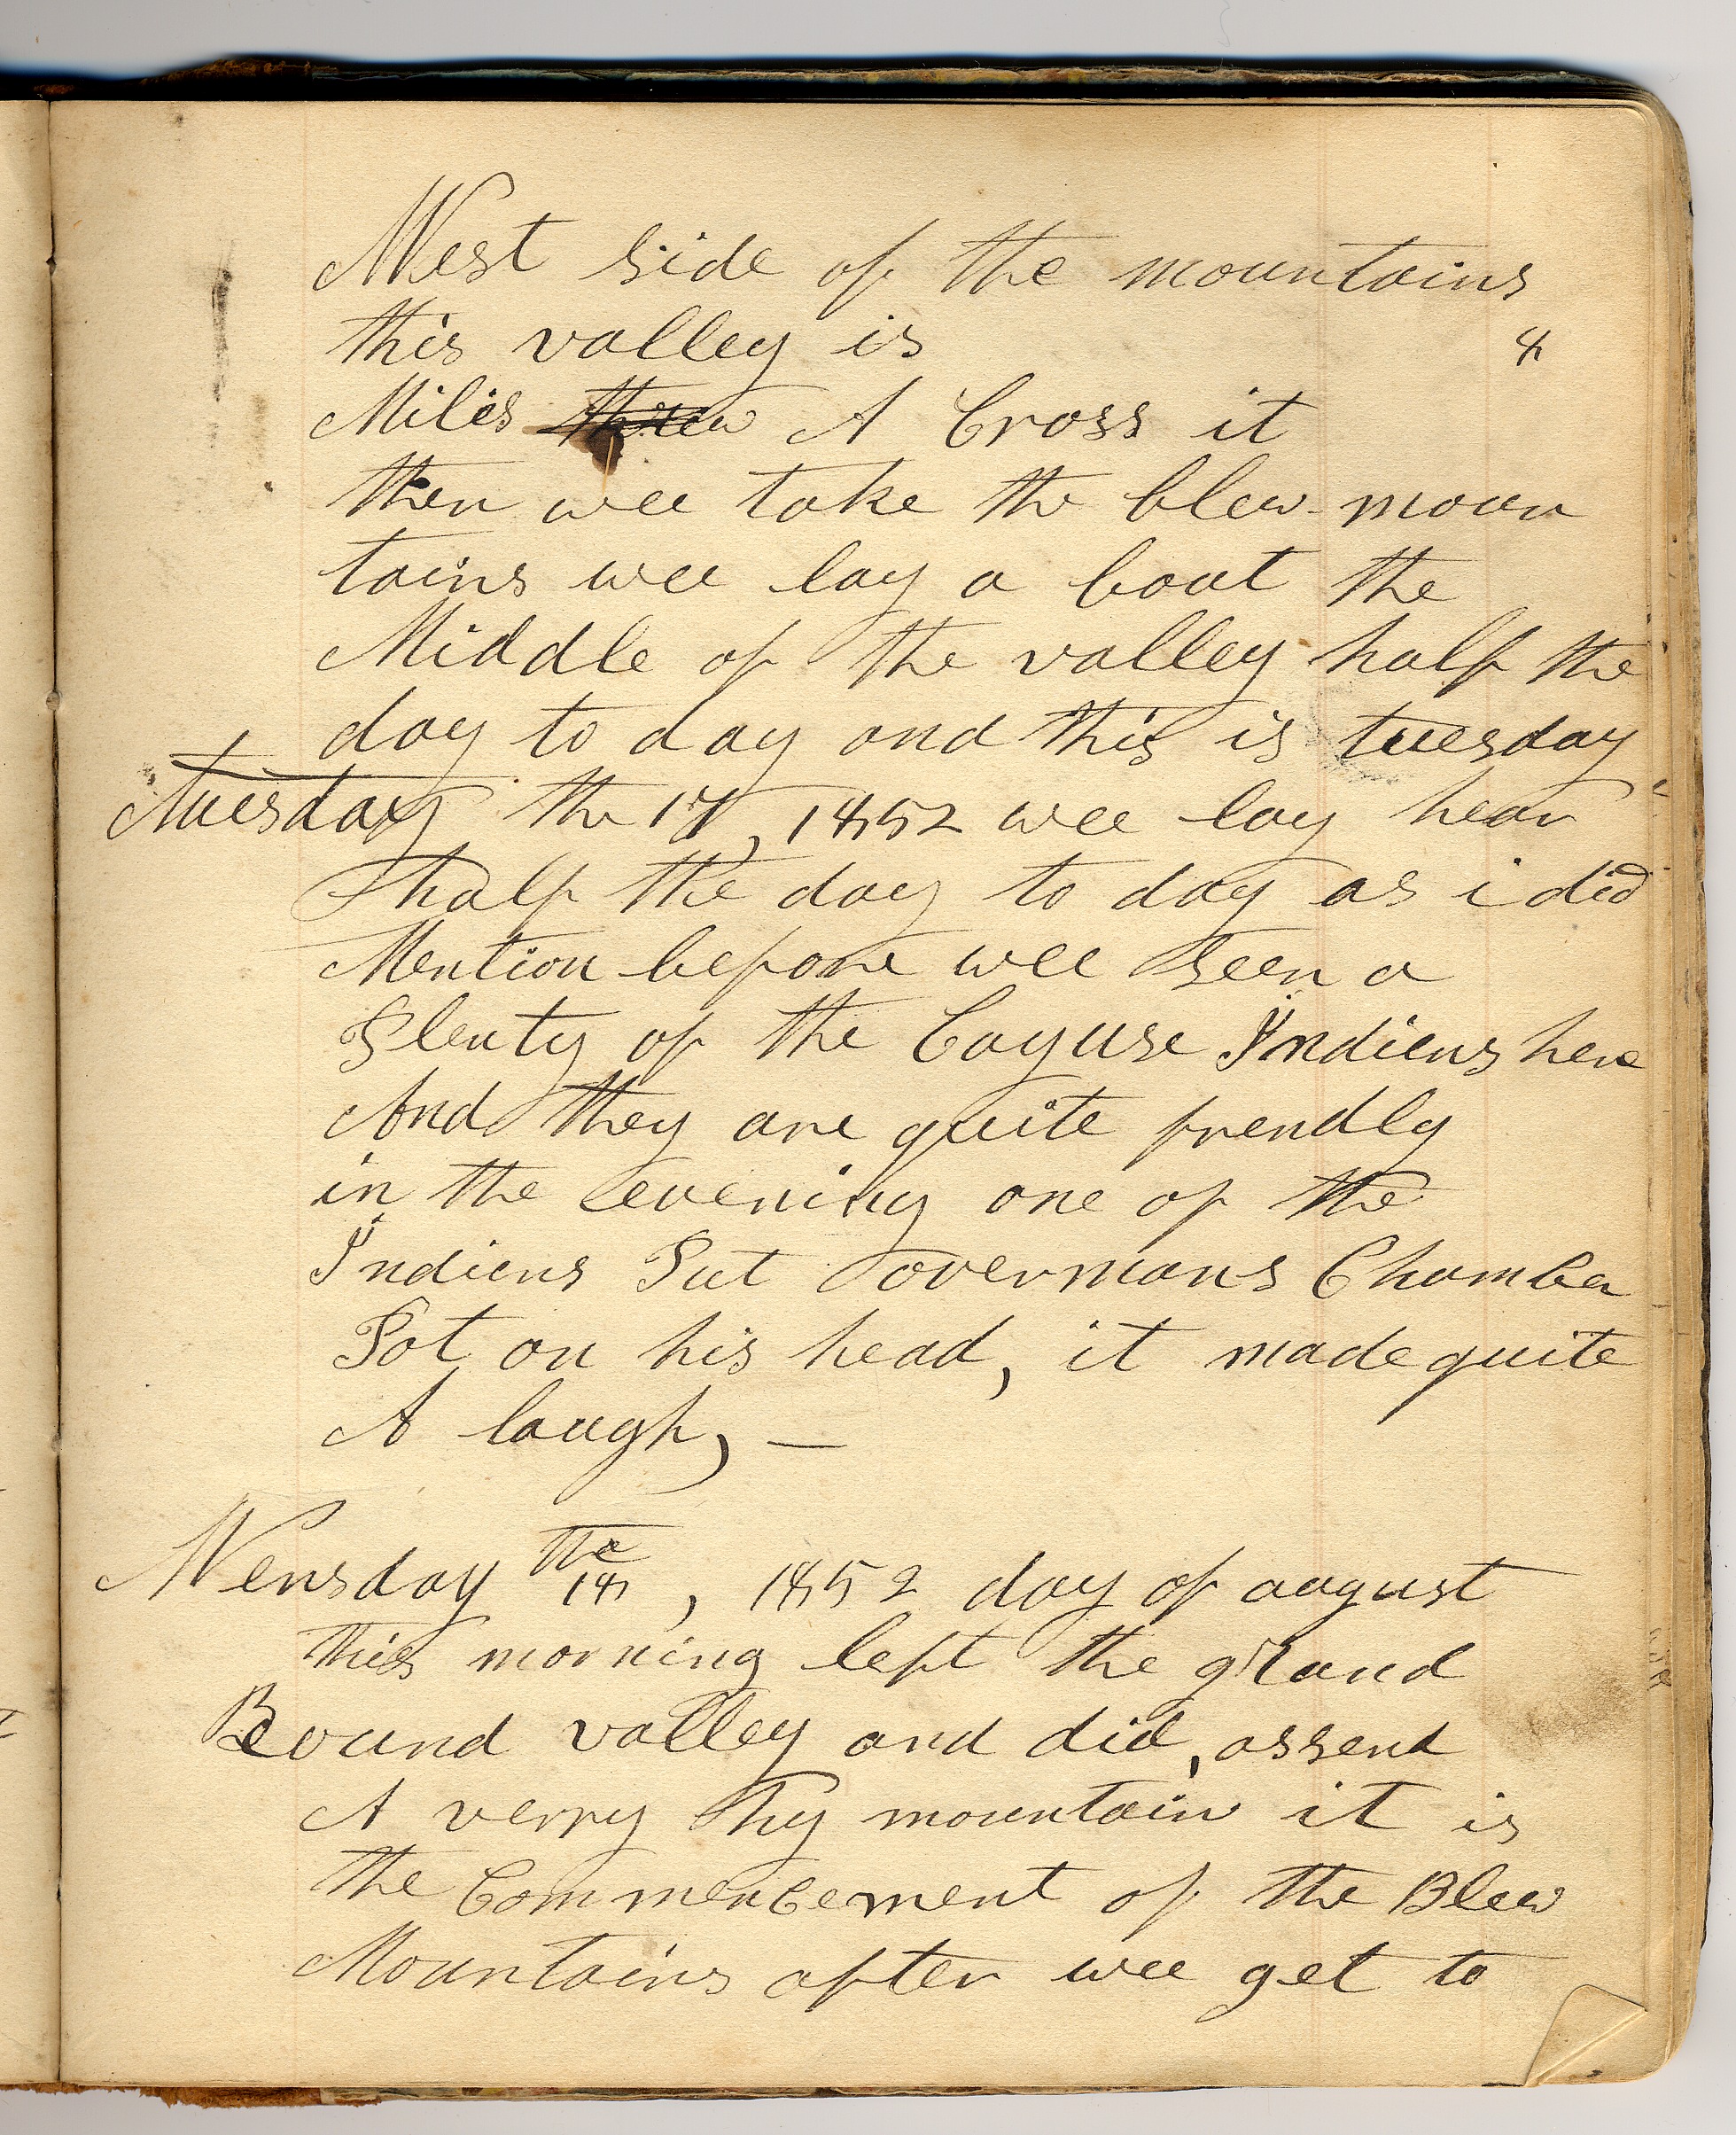 West side of the mountains
this valley is 8
Miles threw A Cross it
then wee take the blew moun
tains wee lay a bout the
Middle of the valley half the
day to day and this is tuesday
Tuesday the 17, 1852 wee lay hear
half the day to day as i did
Mention before wee seen a
Plenty of the Cayuse Indiens here
And they are quite frendly
in the evening one of the
Indiens Put Overmans Chamber
Pot on his head, it made quite
A laugh, —
Wensday the 18, 1852 day of august
this morning left the grand
Round valley and did, assend
A verry hy mountain it is
the Commencement of the Blew
Mountains after wee get to